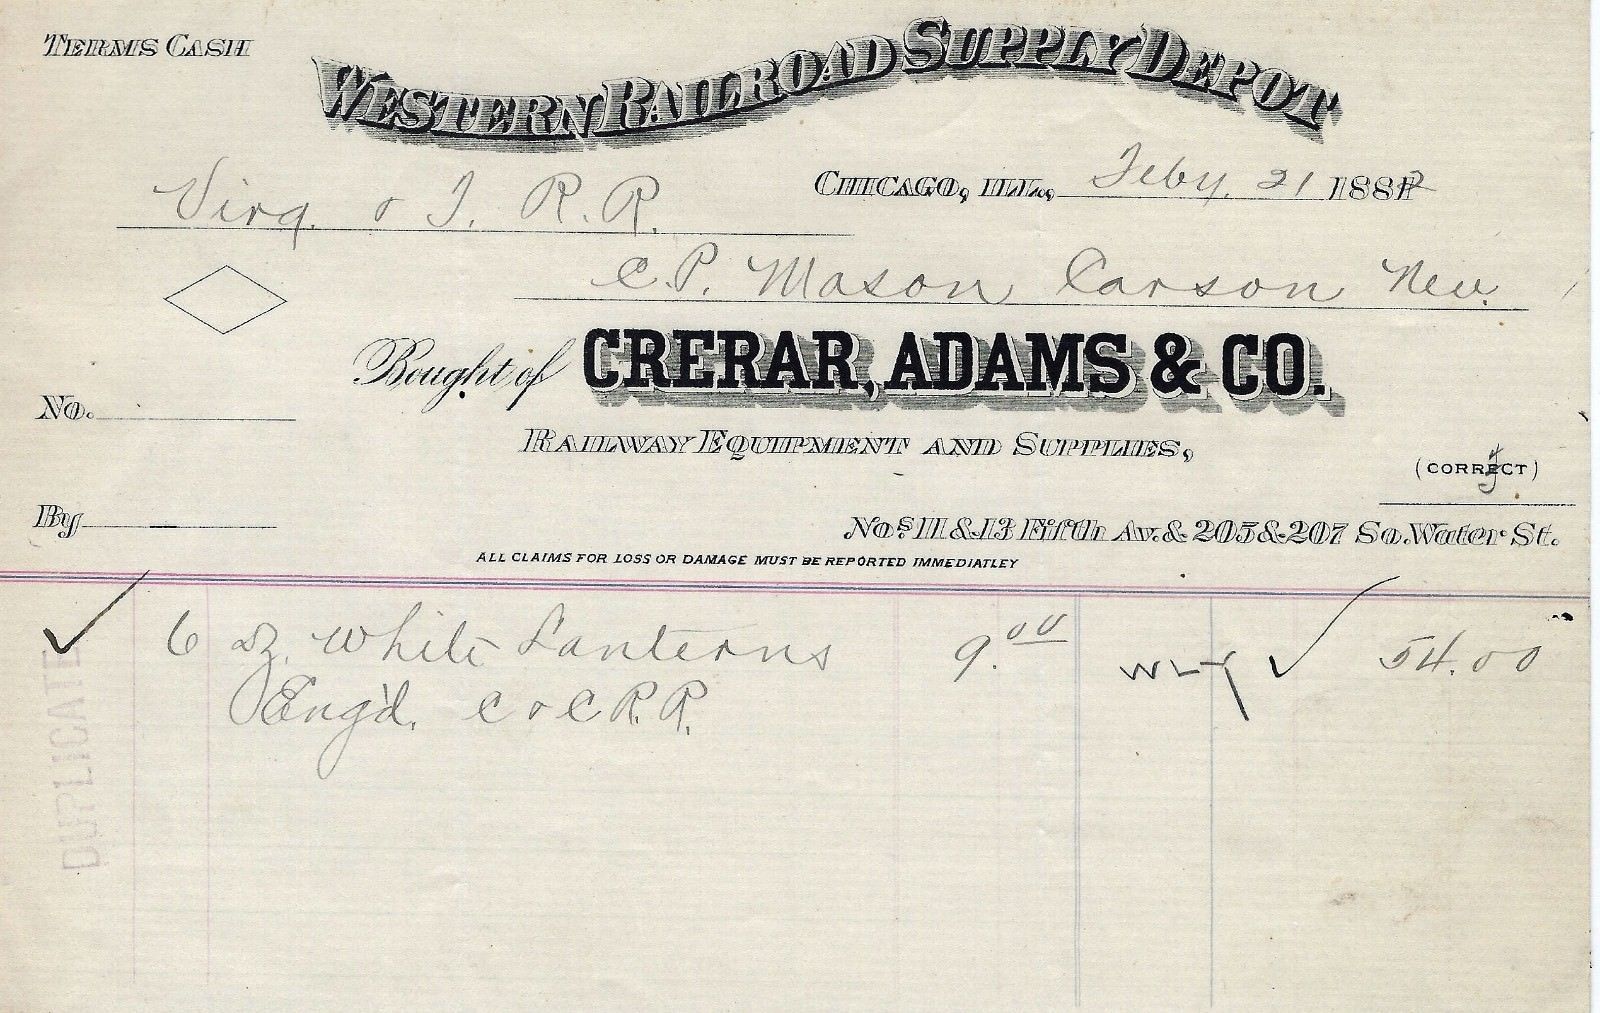 TERMS CASH
WESTERN RAILROAD SUPPLY DEPOT
CHICAGO, ILL., Feby. 21 1882
Virg. & T. R. R.
C. P. Mason Carson Nev.
Bought of CRERAR, ADAMS & CO.
No.
RAILWAY EQUIPMENT AND SUPPLIES,
(CORRECT)
By
Nos. 11 & 13 Fifth Av. & 205 & 207 So. Water St.
ALL CLAIMS FOR LOSS OR DAMAGE MUST BE REPORTED IMMEDIATLEY
6 Dz. White Lanterns 9.00 54.00
Eng'd. C & C R. R.
DUPLICATE